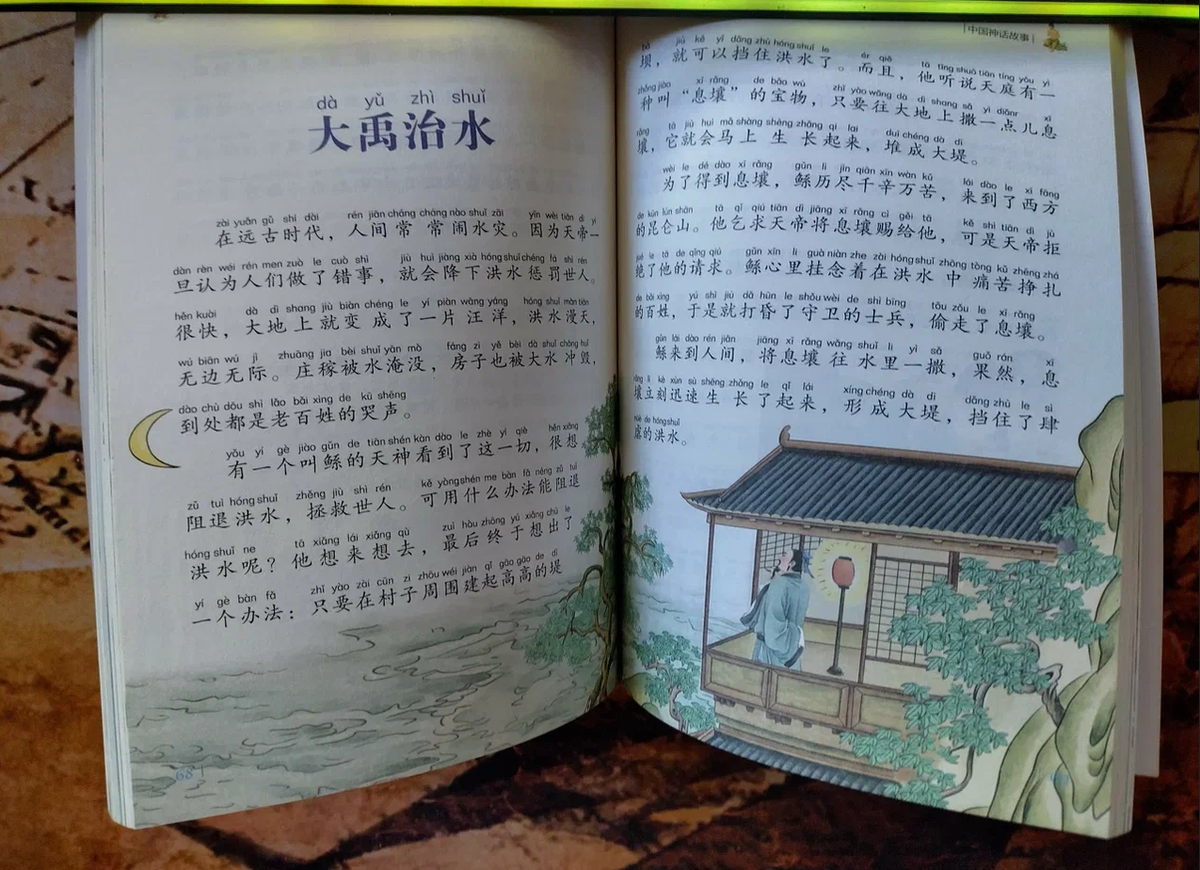 dà yǔ zhì shuǐ
大禹治水
zài yuǎn gǔ shí dài rén jiān cháng cháng nào shuǐ zāi yīn wèi tiān dì yí
在远古时代，人间常常闹水灾。因为天帝一
dàn rèn wéi rén men zuò le cuò shì jiù huì jiàng xià hóng shuǐ chéng fá shì rén
旦认为人们做了错事，就会降下洪水惩罚世人。
hěn kuài dà dì shang jiù biàn chéng le yí piàn wāng yáng hóng shuǐ màn tiān
很快，大地上就变成了一片汪洋，洪水漫天，
wú biān wú jì zhuāng jia bèi shuǐ yān mò fáng zi yě bèi dà shuǐ chōng huǐ
无边无际。庄稼被水淹没，房子也被大水冲毁，
dào chù dōu shì lǎo bǎi xìng de kū shēng
到处都是老百姓的哭声。
yǒu yí gè jiào gǔn de tiān shén kàn dào le zhè yí qiè hěn xiǎng
有一个叫鲧的天神看到了这一切，很想
zǔ tuì hóng shuǐ zhěng jiù shì rén kě yòng shén me bàn fǎ néng zǔ tuì
阻退洪水，拯救世人。可用什么办法能阻退
hóng shuǐ ne tā xiǎng lái xiǎng qù zuì hòu zhōng yú xiǎng chū le
洪水呢？他想来想去，最后终于想出了
yí gè bàn fǎ zhǐ yào zài cūn zi zhōu wéi jiàn qǐ gāo gāo de dī
一个办法：只要在村子周围建起高高的堤
68
中国神话故事
bà jiù kě yǐ dǎng zhù hóng shuǐ le ér qiě tā tīng shuō tiān tíng yǒu yì
坝，就可以挡住洪水了。而且，他听说天庭有一
zhǒng jiào xī rǎng de bǎo wù zhǐ yào wǎng dà dì shang sǎ yì diǎnr xī
种叫“息壤”的宝物，只要往大地上撒一点儿息
rǎng tā jiù huì mǎ shàng shēng zhǎng qǐ lai duī chéng dà dī
壤，它就会马上生长起来，堆成大堤。
wèi le dé dào xī rǎng gǔn lì jìn qiān xīn wàn kǔ lái dào le xī fāng
为了得到息壤，鲧历尽千辛万苦，来到了西方
de kūn lún shān tā qǐ qiú tiān dì jiāng xī rǎng cì gěi tā kě shì tiān dì jù
的昆仑山。他乞求天帝将息壤赐给他，可是天帝拒
jué le tā de qǐng qiú gǔn xīn li guà niàn zhe zài hóng shuǐ zhōng tòng kǔ zhēng zhá
绝了他的请求。鲧心里挂念着在洪水中痛苦挣扎
de bǎi xìng yú shì jiù dǎ hūn le shǒu wèi de shì bīng tōu zǒu le xī rǎng
的百姓，于是就打昏了守卫的士兵，偷走了息壤。
gǔn lái dào rén jiān jiāng xī rǎng wǎng shuǐ li yì sǎ guǒ rán xī
鲧来到人间，将息壤往水里一撒，果然，息
rǎng lì kè xùn sù shēng zhǎng le qǐ lái xíng chéng dà dī dǎng zhù le sì
壤立刻迅速生长了起来，形成大堤，挡住了肆
nüè de hóng shuǐ
虐的洪水。